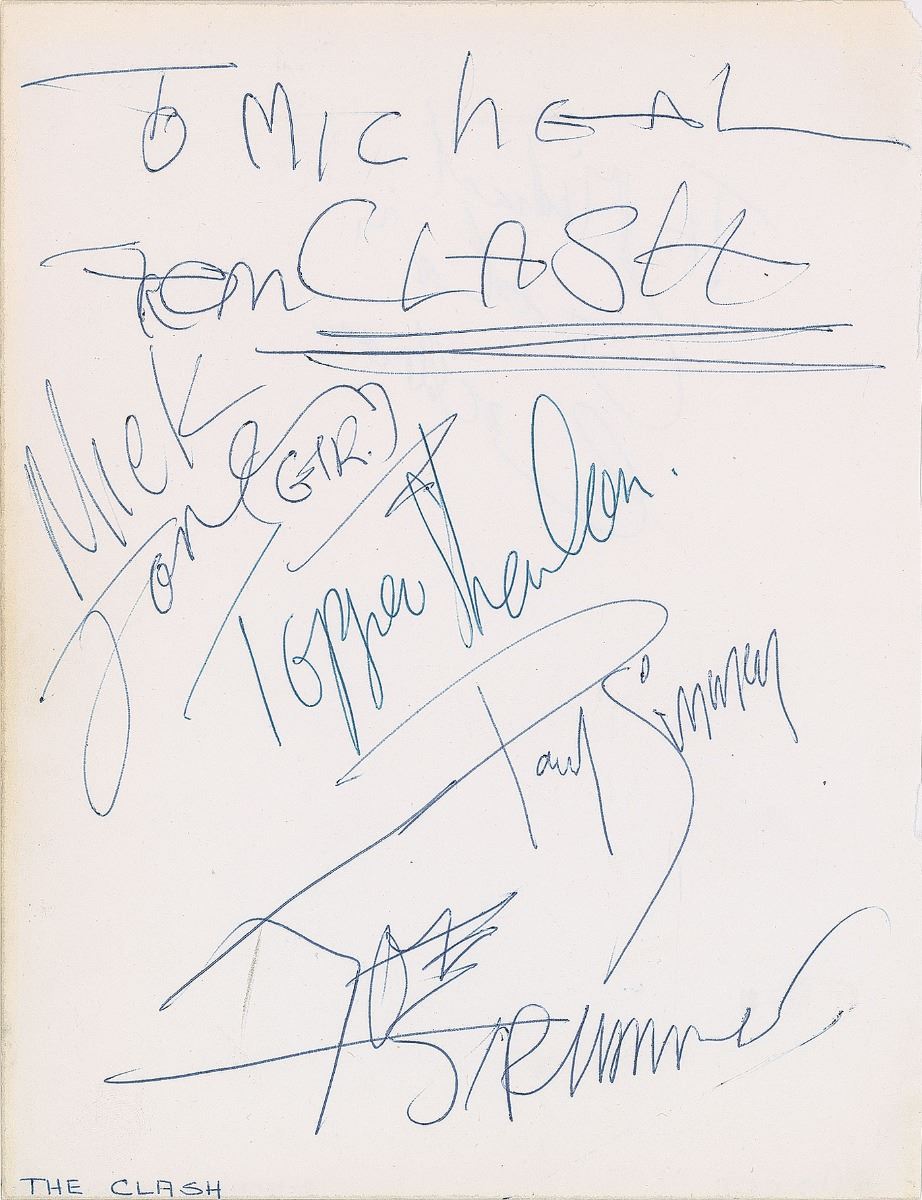 To MICHEAL
FROM CLASH
Mick
Jones
GTR.
Topper Headon.
Paul Simonon
JOE
STRUMMER
THE CLASH